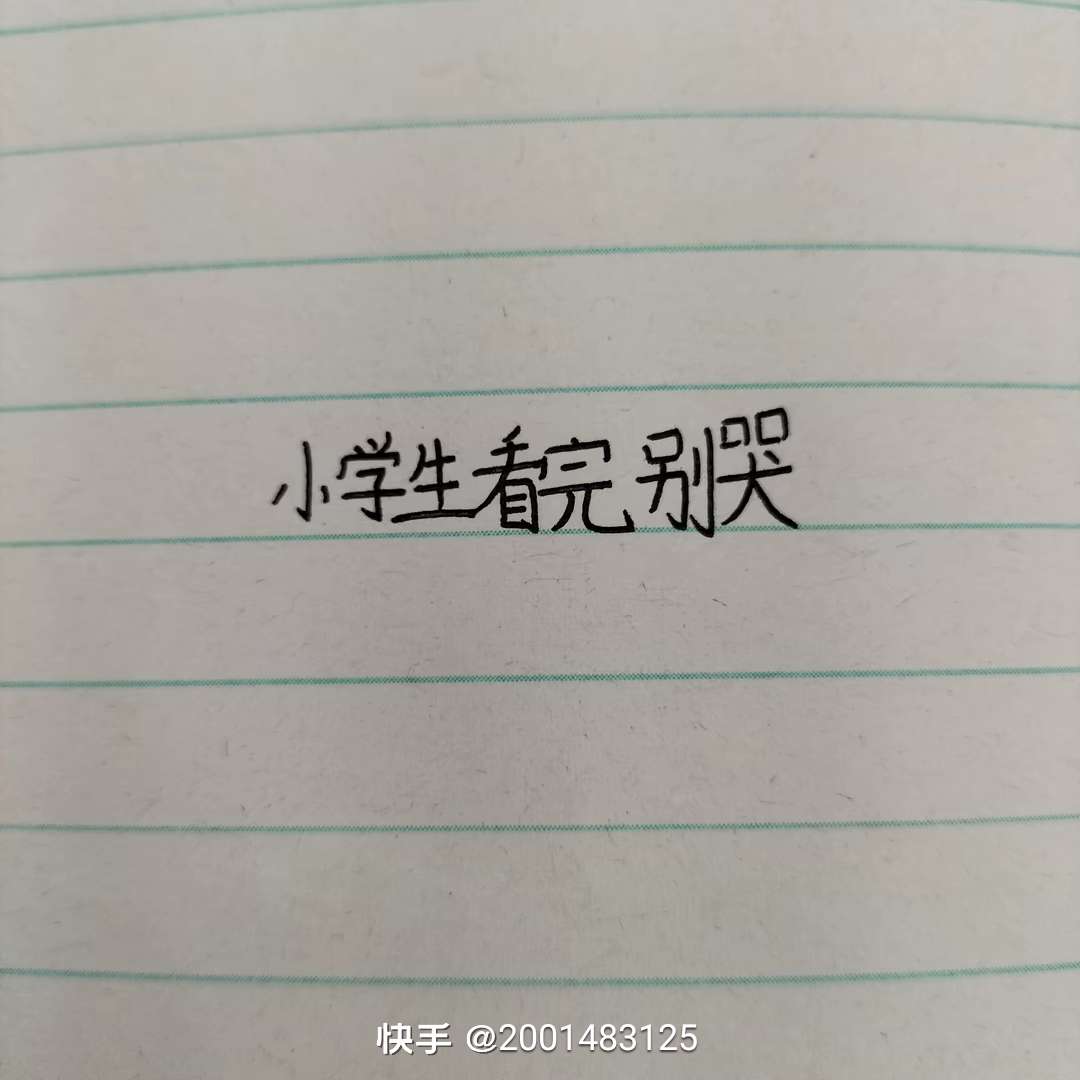 小学生看完别哭
快手 @2001483125